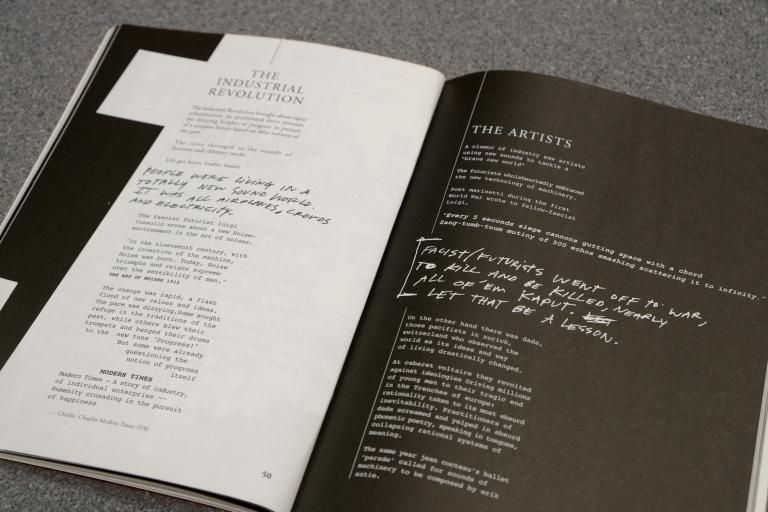 THE
INDUSTRIAL
REVOLUTION
The Industrial Revolution brought about rapid
urbanisation, an accelerated drive towards
the dizzying heights of progress in pursuit
of a utopian future based on false notions of
the past.
The cities thronged to the sounds of
factories and chimney stacks.
Life got faster, louder, busier.
PEOPLE WERE LIVING IN A
TOTALLY NEW SOUND WORLD.
IT WAS ALL AIRPLANES, CROWDS
AND ELECTRICITY.
The fascist futurist luigi
russolo wrote about a new Noise—
environment in the art of noises.
"In the nineteenth century, with
the invention of the machine,
Noise was born. Today, Noise
triumphs and reigns supreme
over the sensibility of men."
THE ART OF NOISES 1913
The change was rapid, a flash
flood of new values and ideas.
The pace was dizzying.Some sought
refuge in the traditions of the
past, while others blew their
trumpets and banged their drums
to the new tune "Progress!"
But some were already
questioning the
notion of progress
itself
MODERN TIMES
Modern Times - A story of industry,
of individual enterprise ~~
Humanity crusading in the pursuit
of happiness
— Charlie Chaplin Modern Times 1936
50
THE ARTISTS
A clamor of industry saw artists
using new sounds to tackle a
"brave new world"
The futurists wholeheartedly embraced
the new technology of machinery.
Poet marinetti during the first
World War wrote to fellow-fascist
Luigi.
"Every 5 seconds siege cannons gutting space with a chord
Zang-tumb-tuum mutiny of 500 echos smashing scattering it to infinity."
FACIST/FUTURISTS WENT OFF TO WAR,
TO KILL AND BE KILLED, NEARLY
ALL OF 'EM KAPUT.
LET THAT BE A LESSON.
On the other hand there was dada,
those pacifists in zurich,
switzerland who observed the
world as its ideas and way
of living drastically changed.
At cabaret voltaire they revolted
against ideologies Driving millions
of young men to their tragic end
in the Trenches of europe;
rationality taken to its most absurd
inevitability. Practitioners of
dada screamed and yelped in absurd
phonetic poetry, speaking in tongues,
collapsing rational systems of
meaning.
The same year jean cocteau's ballet
'parade' called for sounds of
machinery to be composed by erik
satie.